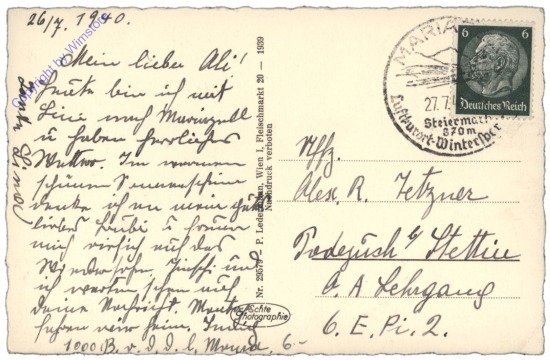 26/7. 1940.
Mein lieber Ali!
Heute bin ich mit
Lini nach Mariazell
u haben herrliches
Wetter. Im warmen
schönen Sonnenschein
denke ich an mein gutes
liebes Bubi u freuen
mich riesig auf das
Wiedersehen. und
ich warten schon auf
deine Nachricht.
fahren wir heim.
1000 B. v. d. d. l.
Copyright by Winston's
Nr. 29579 - P. Ledermann, Wien I, Fleischmarkt 20 - 1939
Nachdruck verboten
Echte
Photographie
MARIA
27.7.
Steiermark
870m
Luftkurort-Wintersport
6 6
Deutsches Reich
Uffz.
Alex. R. Tetzner
Podejuch b/ Stettin
O A Lehrgang
6. E. Pi. 2.
6-